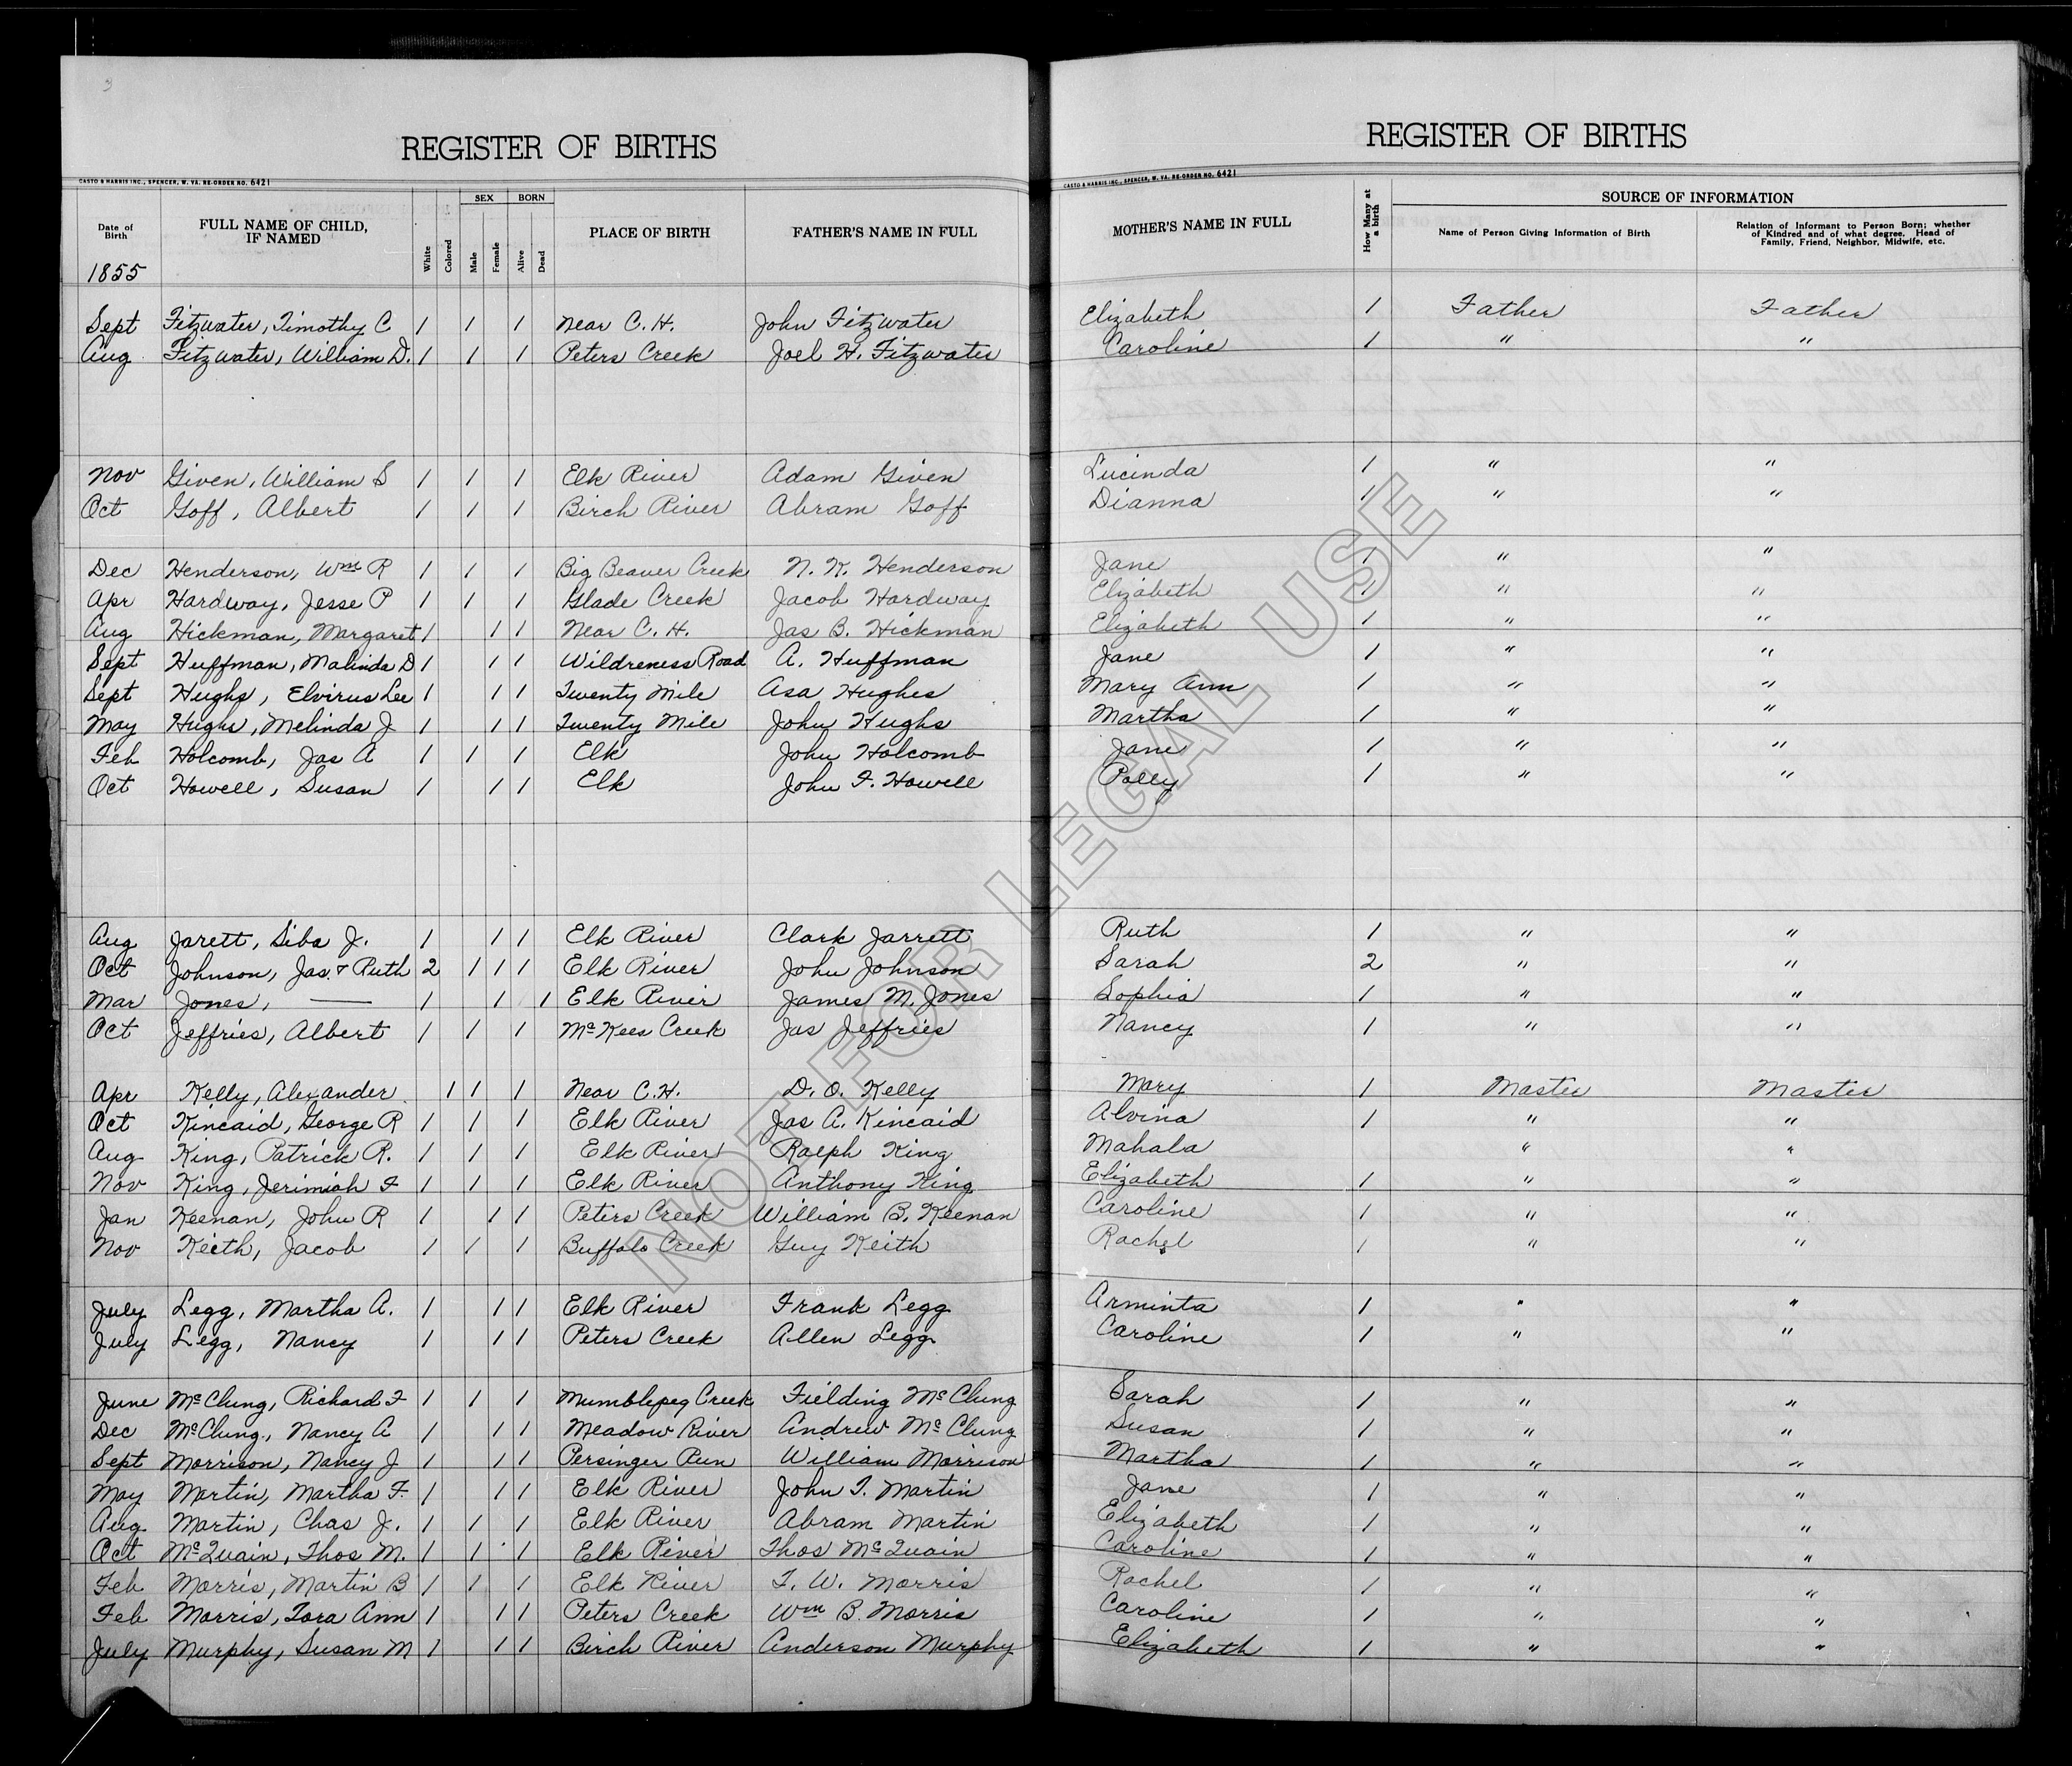 3
REGISTER OF BIRTHS
CASTO & HARRIS INC., SPENCER, W. VA. RE-ORDER NO. 6421
Date of Birth FULL NAME OF CHILD, IF NAMED White Colored SEX Male Female BORN Alive Dead PLACE OF BIRTH FATHER'S NAME IN FULL
1855
Sept Fitzwater, Timothy C 1 1 1 Near C. H. John Fitzwater
Aug Fitzwater, William D. 1 1 1 Peters Creek Joel H. Fitzwater
Nov Given, William S 1 1 1 Elk River Adam Given
Oct Goff, Albert 1 1 1 Birch River Abram Goff
Dec Henderson, Wm R 1 1 1 Big Beaver Creek N. K. Henderson
Apr Hardway, Jesse P 1 1 1 Glade Creek Jacob Hardway
Aug Hickman, Margaret 1 1 1 Near C. H. Jas B. Hickman
Sept Huffman, Malinda D 1 1 1 Wildreness Road A. Huffman
Sept Hughs, Elvirus Lee 1 1 1 Twenty Mile Asa Hughes
May Hughs, Melinda J 1 1 1 Twenty Mile John Hughs
Feb Holcomb, Jas A 1 1 1 Elk John Holcomb
Oct Howell, Susan 1 1 1 Elk John F. Howell
Aug Jarett, Siba J. 1 1 1 Elk River Clark Jarrett
Oct Johnson, Jas. & Ruth 2 1 1 1 Elk River John Johnson
Mar Jones, — 1 1 1 Elk River James M. Jones
Oct Jeffries, Albert 1 1 1 McKees Creek Jas Jeffries
Apr Kelly, Alexander 1 1 1 Near C.H. D. O. Kelly
Oct Kincaid, George R 1 1 1 Elk River Jas A. Kincaid
Aug King, Patrick R. 1 1 1 Elk River Ralph King
Nov King, Jerimiah F 1 1 1 Elk River Anthony King
Jan Keenan, John R 1 1 1 Peters Creek William B. Keenan
Nov Keith, Jacob 1 1 1 Buffalo Creek Guy Keith
July Legg, Martha A. 1 1 1 Elk River Frank Legg
July Legg, Nancy 1 1 1 Peters Creek Allen Legg
June McClung, Richard F 1 1 1 Mumblepeg Creek Fielding McClung
Dec McClung, Nancy A 1 1 1 Meadow River Andrew McClung
Sept Morrison, Nancy J 1 1 1 Persinger Run William Morrison
May Martin, Martha F. 1 1 1 Elk River John T. Martin
Aug Martin, Chas J. 1 1 1 Elk River Abram Martin
Oct McQuain, Thos M. 1 1 1 Elk River Thos McQuain
Feb Morris, Martin B 1 1 1 Elk River T. W. Morris
Feb Morris, Tora Ann 1 1 1 Peters Creek Wm B. Morris
July Murphy, Susan M 1 1 1 Birch River Anderson Murphy
REGISTER OF BIRTHS
CASTO & HARRIS INC., SPENCER, W. VA. RE-ORDER NO. 6421
MOTHER'S NAME IN FULL How Many at a birth SOURCE OF INFORMATION
Name of Person Giving Information of Birth Relation of Informant to Person Born; whether of Kindred and of what degree. Head of Family, Friend, Neighbor, Midwife, etc.
Elizabeth 1 Father Father
Caroline 1 " "
Lucinda 1 " "
Dianna 1 " "
Jane 1 " "
Elizabeth 1 " "
Elizabeth 1 " "
Jane 1 " "
Mary Ann 1 " "
Martha 1 " "
Jane 1 " "
Polly 1 " "
Ruth 1 " "
Sarah 2 " "
Sophia 1 " "
Nancy 1 " "
Mary 1 Master Master
Alvina 1 " "
Mahala " "
Elizabeth 1 " "
Caroline 1 " "
Rachel 1 " "
Arminta 1 " "
Caroline 1 " "
Sarah 1 " "
Susan 1 " "
Martha 1 " "
Jane 1 " "
Elizabeth 1 " "
Caroline 1 " "
Rachel 1 " "
Caroline 1 " "
Elizabeth 1 " "
NOT FOR LEGAL USE